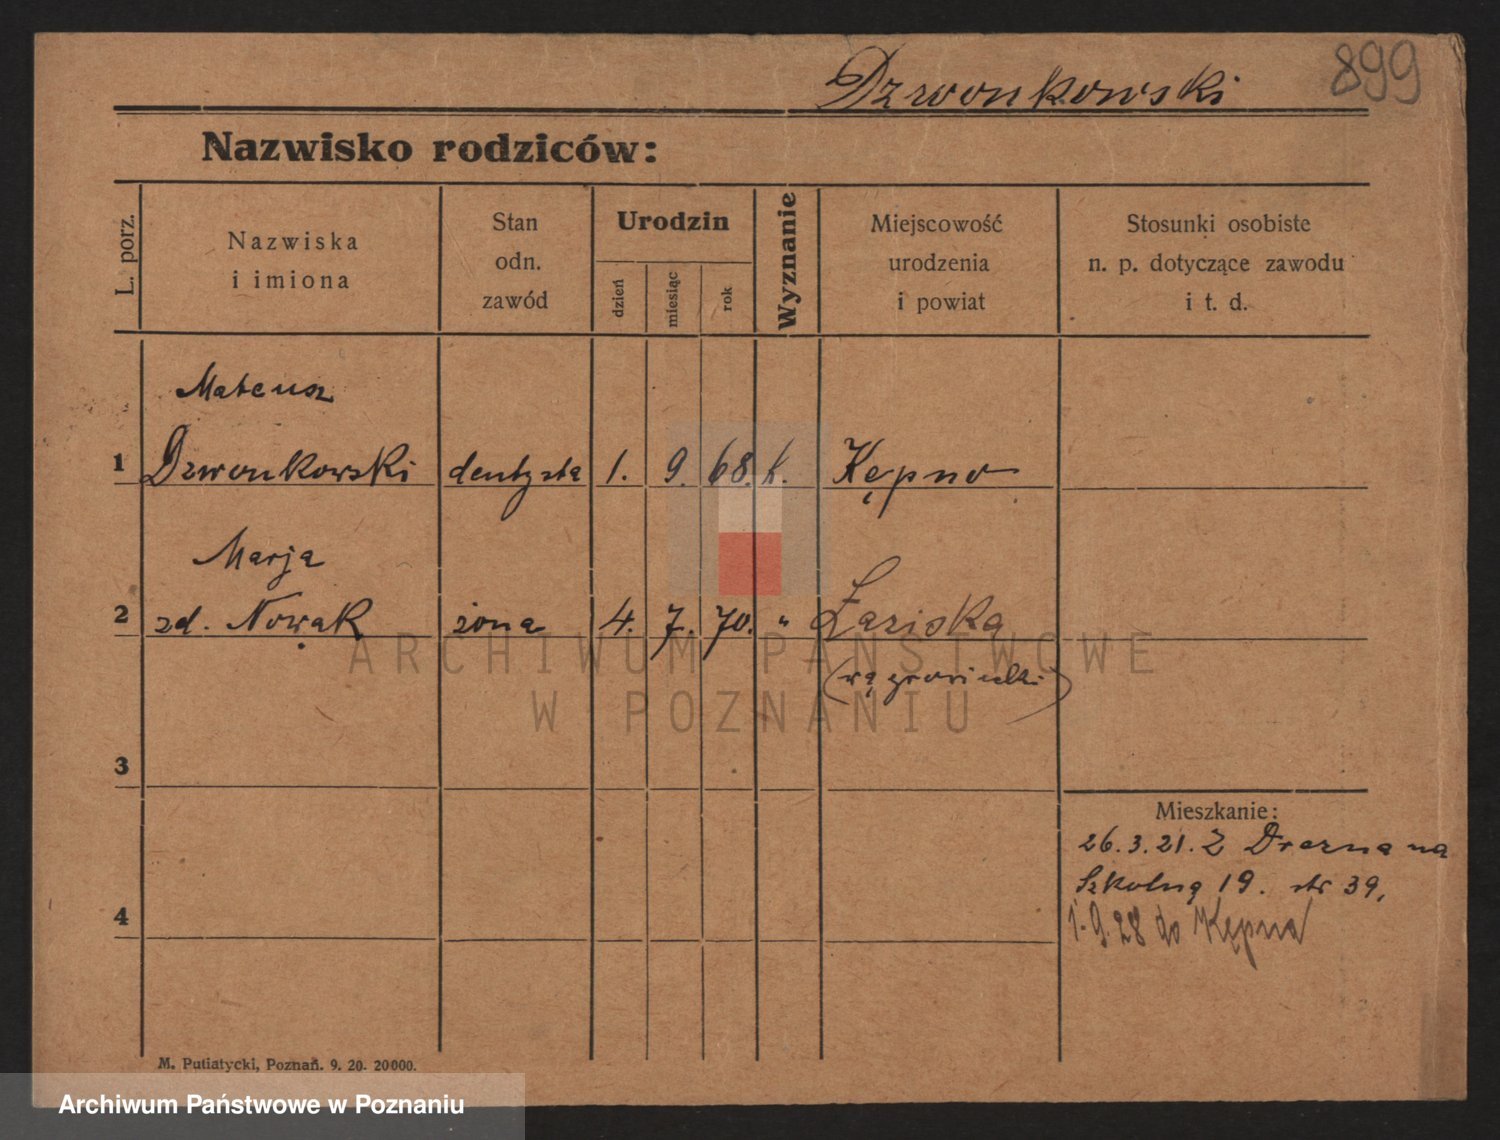 Dzwonkowski
899
Nazwisko rodziców:
L. porz.
Nazwiska
i imiona
Stan
odn.
zawód
Urodzin
dzień
miesiąc
rok
Wyznanie
Miejscowość
urodzenia
i powiat
Stosunki osobiste
n. p. dotyczące zawodu
i t. d.
Mateusz
1 Dzwonkowski dentysta 1. 9. 68. k. Kępno
Marja
2 zd. Nowak żona 4. 7. 70. " Łaziska
(wągrowiecki)
ARCHIWUM PAŃSTWOWE
W POZNANIU
3
Mieszkanie:
26.3.21. Z Drezna na
Szkolną 19. str 39,
4
1.9.28 do Kępna
M. Putiatycki, Poznań. 9. 20. 20000.
Archiwum Państwowe w Poznaniu